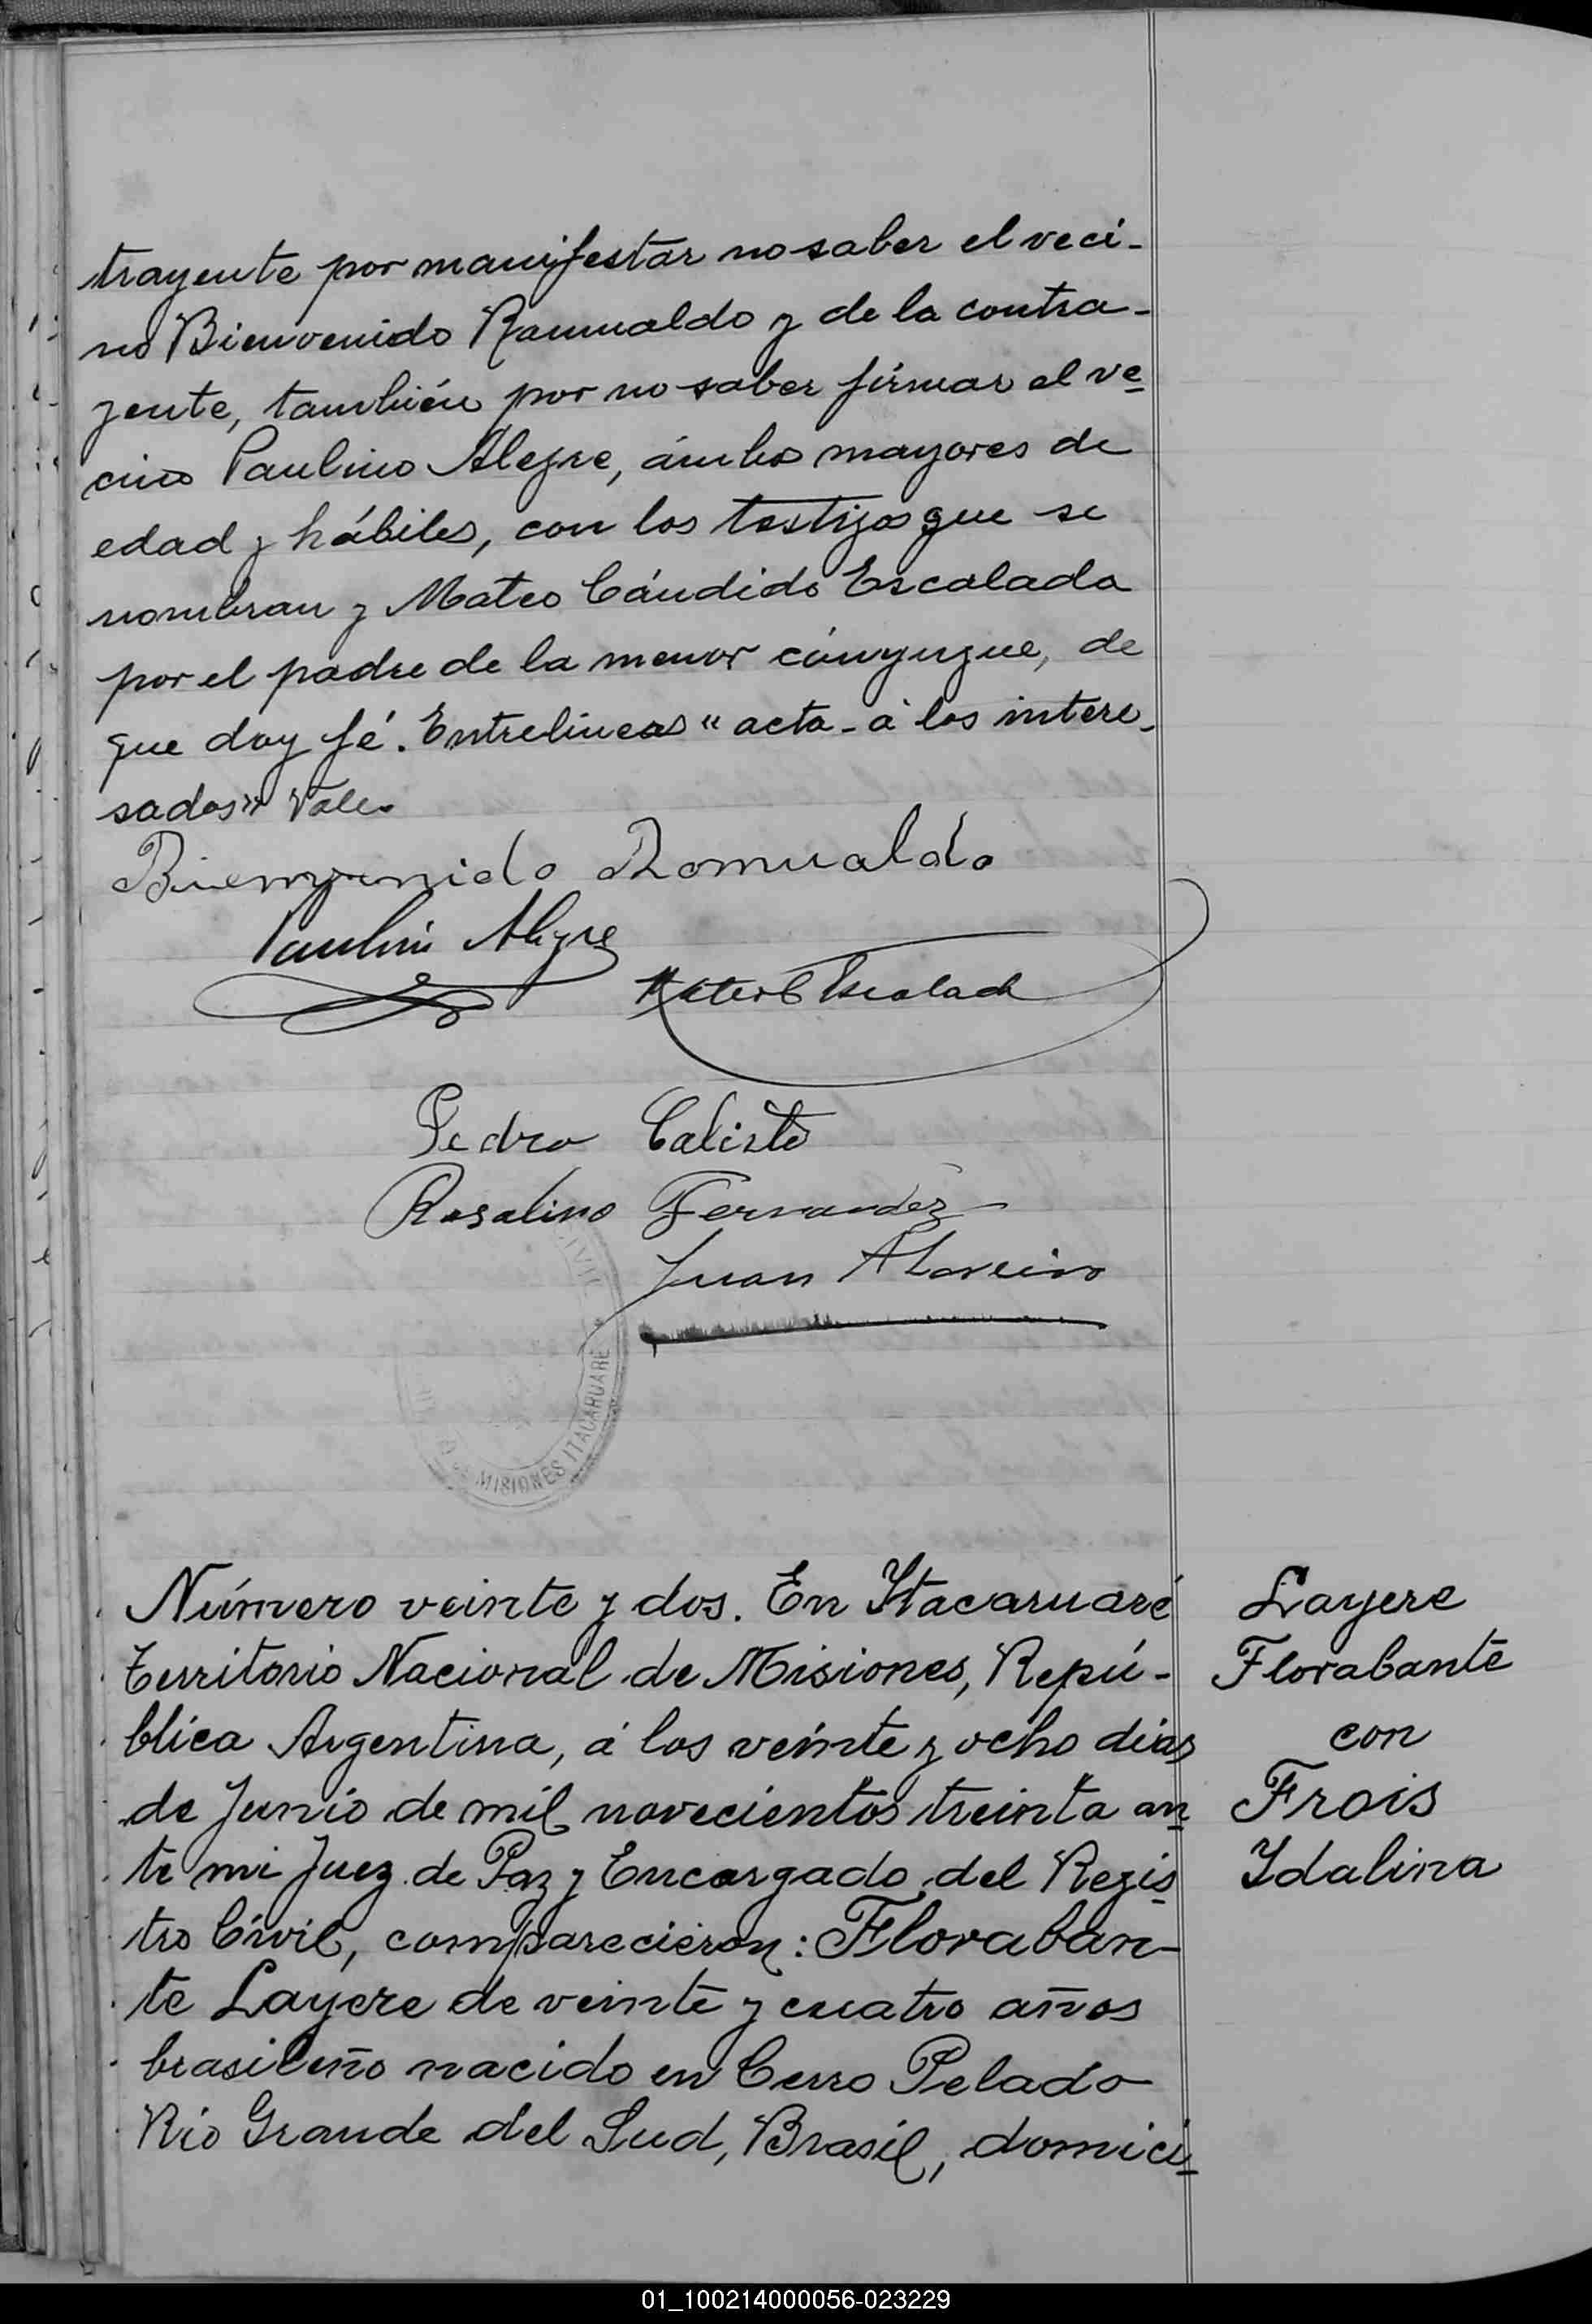 trayente por manifestar no saber el veci-
no Bienvenido Romualdo y de la contra-
yente, también por no saber firmar el ve-
cino Paulino Alegre, ámbos mayores de
edad y hábiles, con los testigos que se
nombran y Mateo Cándido Escalada
por el padre de la menor cónyugue, de
que doy fé. Entrelineas "acta - á los intere-
sados" Vale.
Bienvenido Romualdo
Paulino Alegre
Mateo C Escalada
Pedro Calisto
Rosalino Fernandez
Juan
CIVIL
MISIONES ITACARUARÉ
Número veinte y dos. En Itacaruaré
Territorio Nacional de Misiones, Repú-
blica Argentina, á los veinte y ocho dias
de Junio de mil novecientos treinta an-
te mi Juez de Paz y Encargado del Regis-
tro Civil, comparecieron: Floraban-
te Layere de veinte y cuatro años
brasileño nacido en Cerro Pelado
Rio Grande del Sud, Brasil, domici-
Layere
Florabante
con
Frois
Idalina
01_100214000056-023229